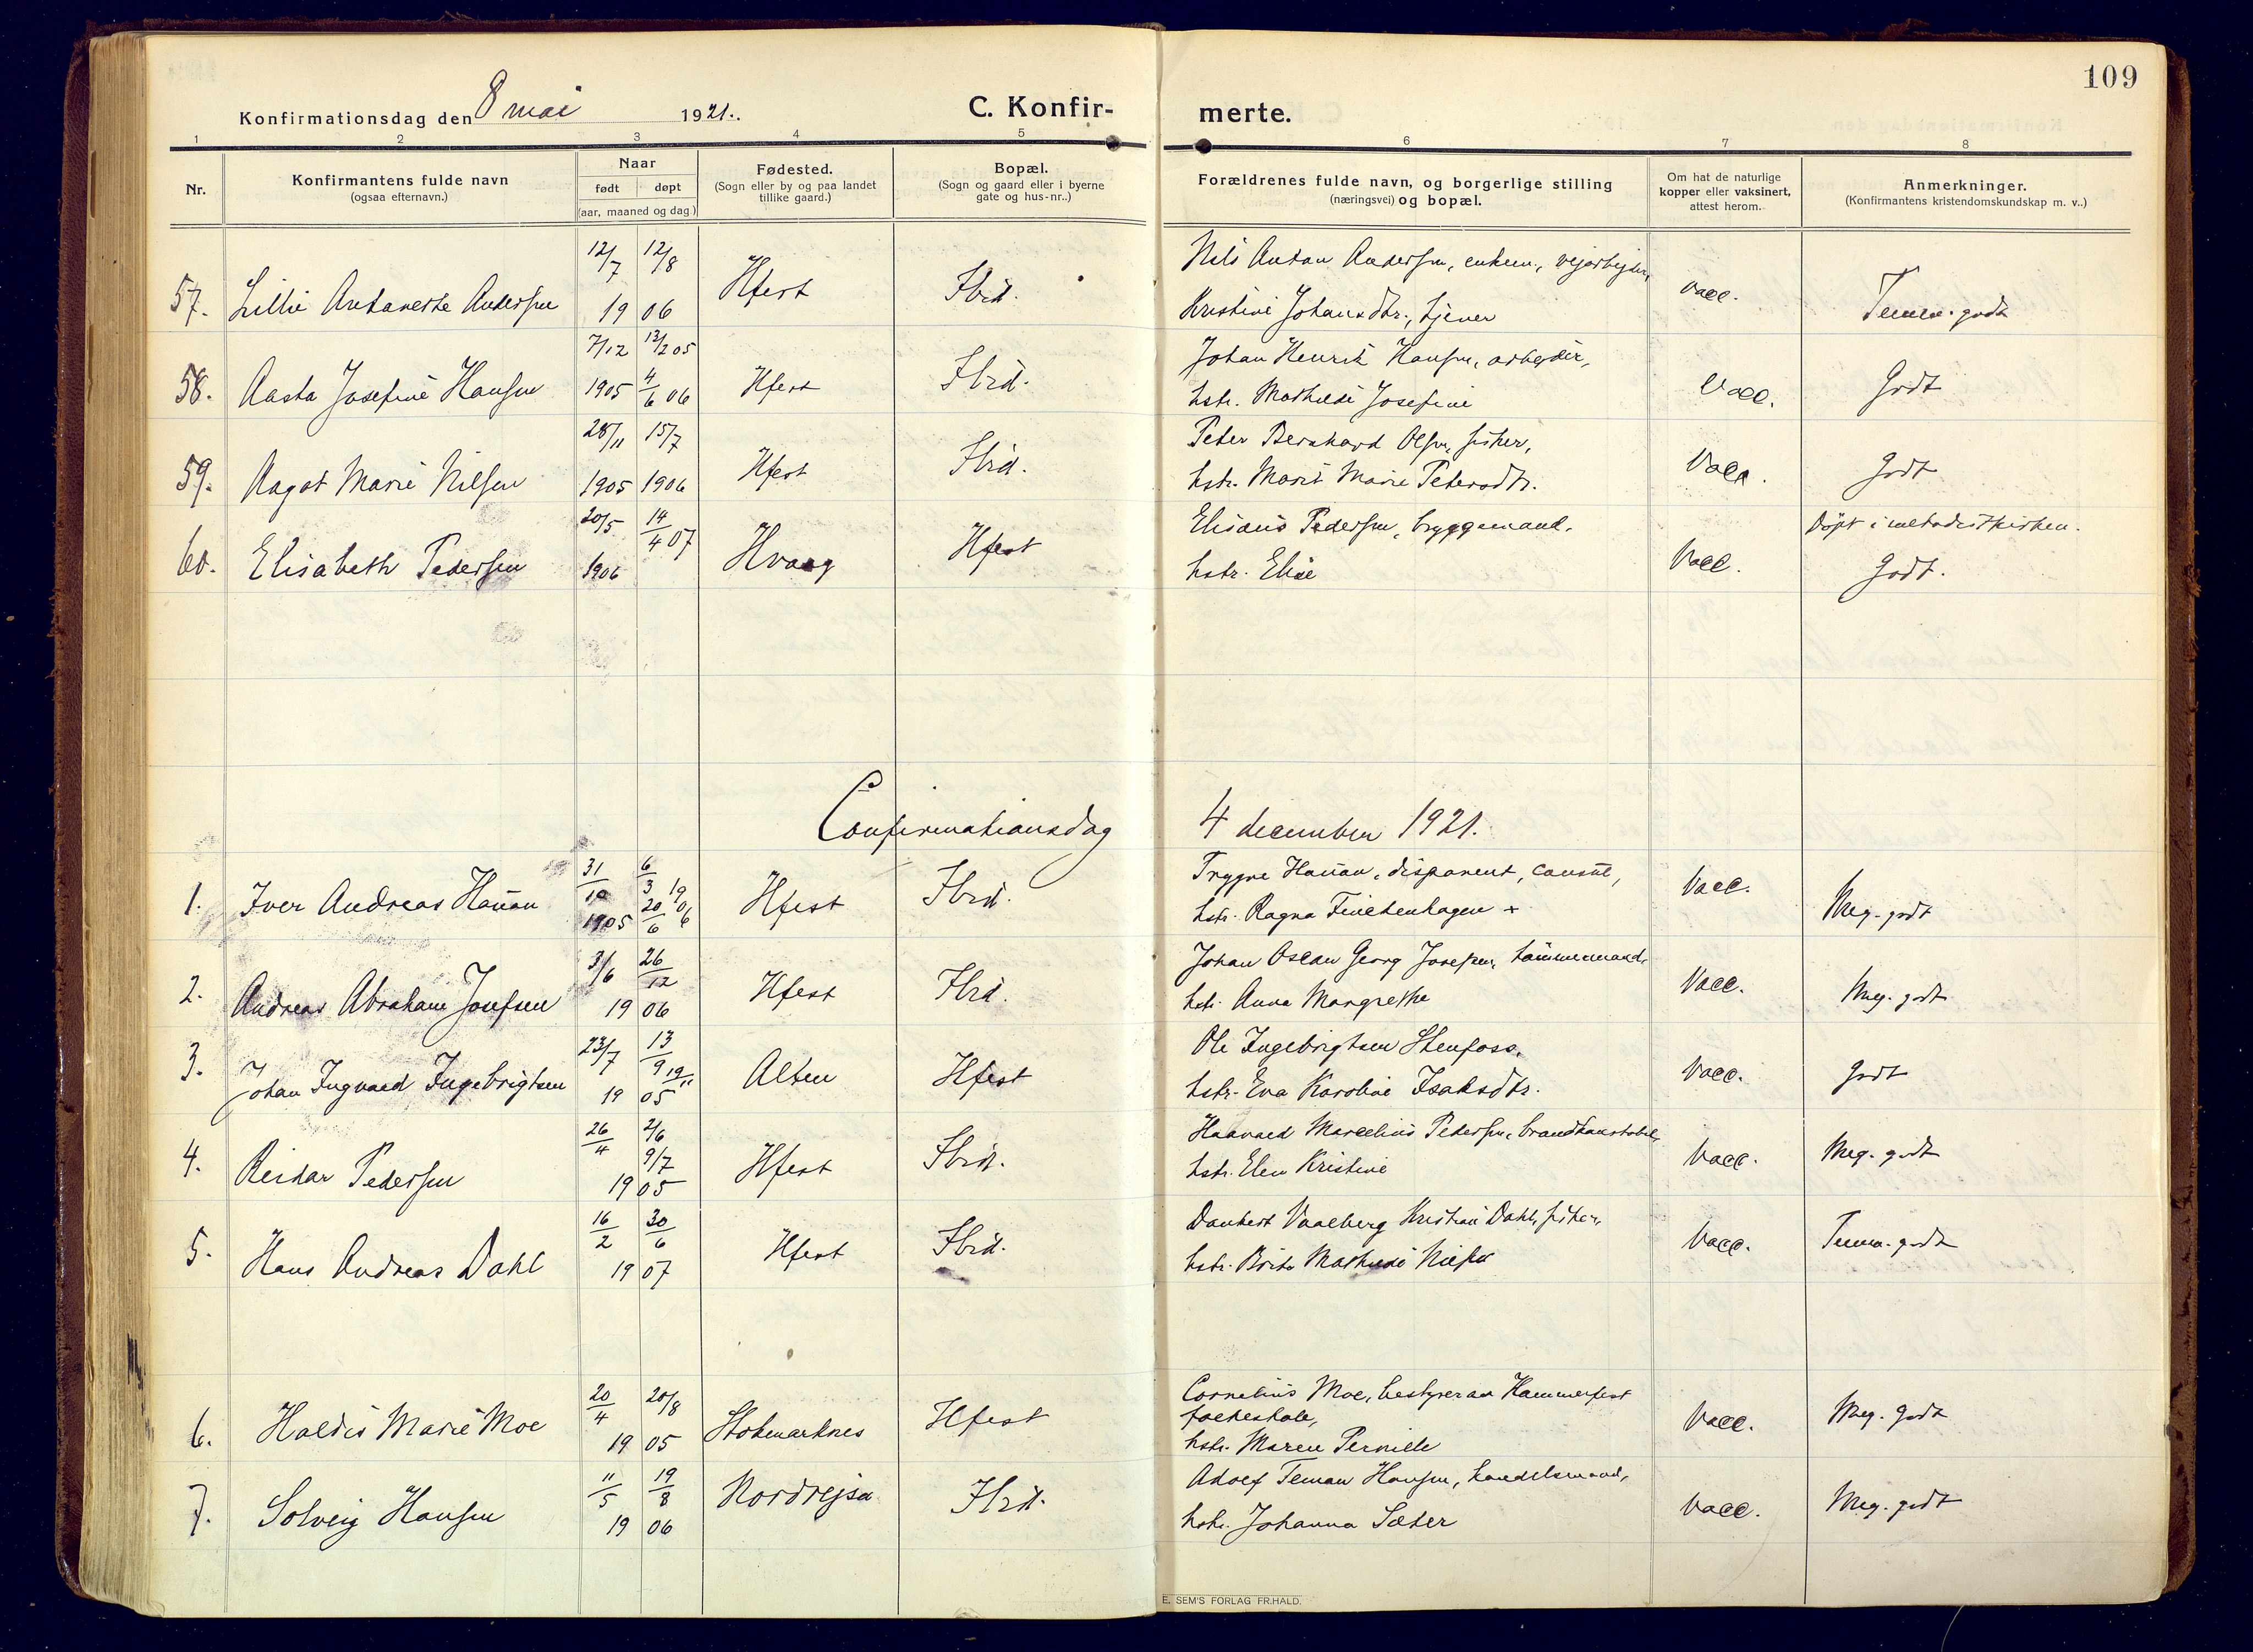 109
Konfirmationsdag den 8 mai 1921.
C. Konfirmerte.
1 2 3 4 5 6 7 8
Nr.
Konfirmantens fulde navn
(ogsaa efternavn.)
Naar
født døpt
(aar, maaned og dag.)
Fødested.
(Sogn eller by og paa landet
tillike gaard.)
Bopæl.
(Sogn og gaard eller i byerne
gate og hus-nr..)
Forældrenes fulde navn, og borgerlige stilling
(næringsvei) og bopæl.
Om hat de naturlige
kopper eller vaksinert,
attest herom.
Anmerkninger.
(Konfirmantens kristendomskundskap m. v..)
12/7 12/8 Nils Antan Andersen, enkem., vejarbejder,
57. Lillie Antanette Andersen 19 06 Hfest Ibid. Kristine Johansdtr., tjener Vacc. Temm. godt
7/12 12/2 05 Johan Henrik Hansen, arbejder,
58. Aasta Josefine Hansen 1905 4/6 06 Hfest Ibid. hstr. Mathilde Josefine Vacc. Godt
28/11 15/7 Peter Bernhard Olsen, fisker,
59. Aagot Marie Nilsen 1905 1906 Hfest Ibid. hstr. Marit Marie Petersdtr. Vacc. Godt
20/5 14/4 07 Elisæus Pedersen, bryggemand. Døpt i metodistkirken.
60. Elisabeth Pedersen 1906 Hvaag Hfest hstr. Elise Vacc. Godt.
Confirmationsdag 4 december 1921.
31/10 6/3 19 Trygve Hauan, disponent, consul,
1. Iver Andreas Hauan 1905 20/6 06 Hfest Ibid. hstr. Ragna Finckenhagen + Vacc. Meg. godt
3/6 26/12 Johan Oscar Georg Josefsen, tømmermand,
2. Andreas Abraham Josefsen 19 06 Hfest Ibid. hstr. Anna Margrethe Vacc. Meg. godt
23/7 13/9 19/11 Ole Ingebrigtsen Stenfoss,
3. Johan Ingvald Ingebrigtsen 19 05 Alten Hfest hstr. Eva Karoline Isaksdtr. Vacc. Godt
26/4 2/6 9/7 Haavald Marcelius Pedersen, brandkonstabel,
4. Reidar Pedersen 19 05 Hfest Ibid. hstr. Elen Kristine Vacc. Meg. godt
16/2 30/6 Dankert Vaalberg Kristian Dahl, fisker,
5. Hans Andreas Dahl 19 07 Hfest Ibid. hstr. Mathilde Vacc. Temm. godt
20/4 20/8 Cornelius Moe, bestyrer av Hammerfest
folkeskole,
6. Haldis Marie Moe 19 05 Stokmarknes Hfest hstr. Maren Pernille Vacc. Meg. godt
11/5 19/8 Adolf Teman Hansen, handelsmand,
7. Solveig Hansen 19 06 Nordrejsa Ibid. hstr. Johanna Sæter Vacc. Meg. godt
E. SEM'S FORLAG FR.HALD.